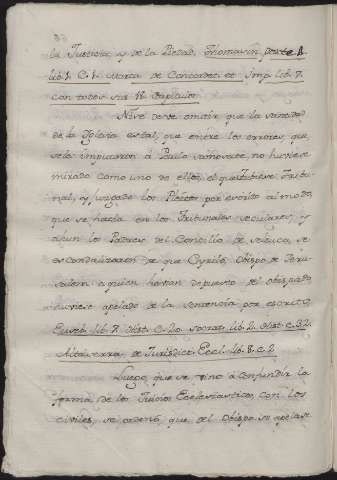 la Justicia, y de la Piedad. Thomasin parte 2
lib. 1. C. 1. Marca de Concordet. et Imp. lib. 7.
con todos sus 18 Capitulos.
Ni se deve omitir que la santidad
de la Iglesia es tal, que entre los errores, que
se le imputaron à Paulo samosate, no huviese
mirado como uno de ellos, el que tubiese Tribu-
nal, y juzgado los Pleitos por escrito al modo,
que se hacía en los Tribunales seculares, y
ahun los Padres del Concilio de Seleucia, se
escandalizaron de que Cyrilo Obispo de Jeru-
salem, a quien havian depuesto del obispado
huviese apelado de la sentencia por escrito.
Euseb. lib. 7. Hist. C. 20. Socrat. lib. 2. Hist. C. 32.
Altaserra de Jurisdict. Eccl. lib. 8. C. 2.
Luego, que se vino à confundir la
forma de los Juicios Ecclesiasticos, con los
civiles, se ordenó, que del Obispo se apelase